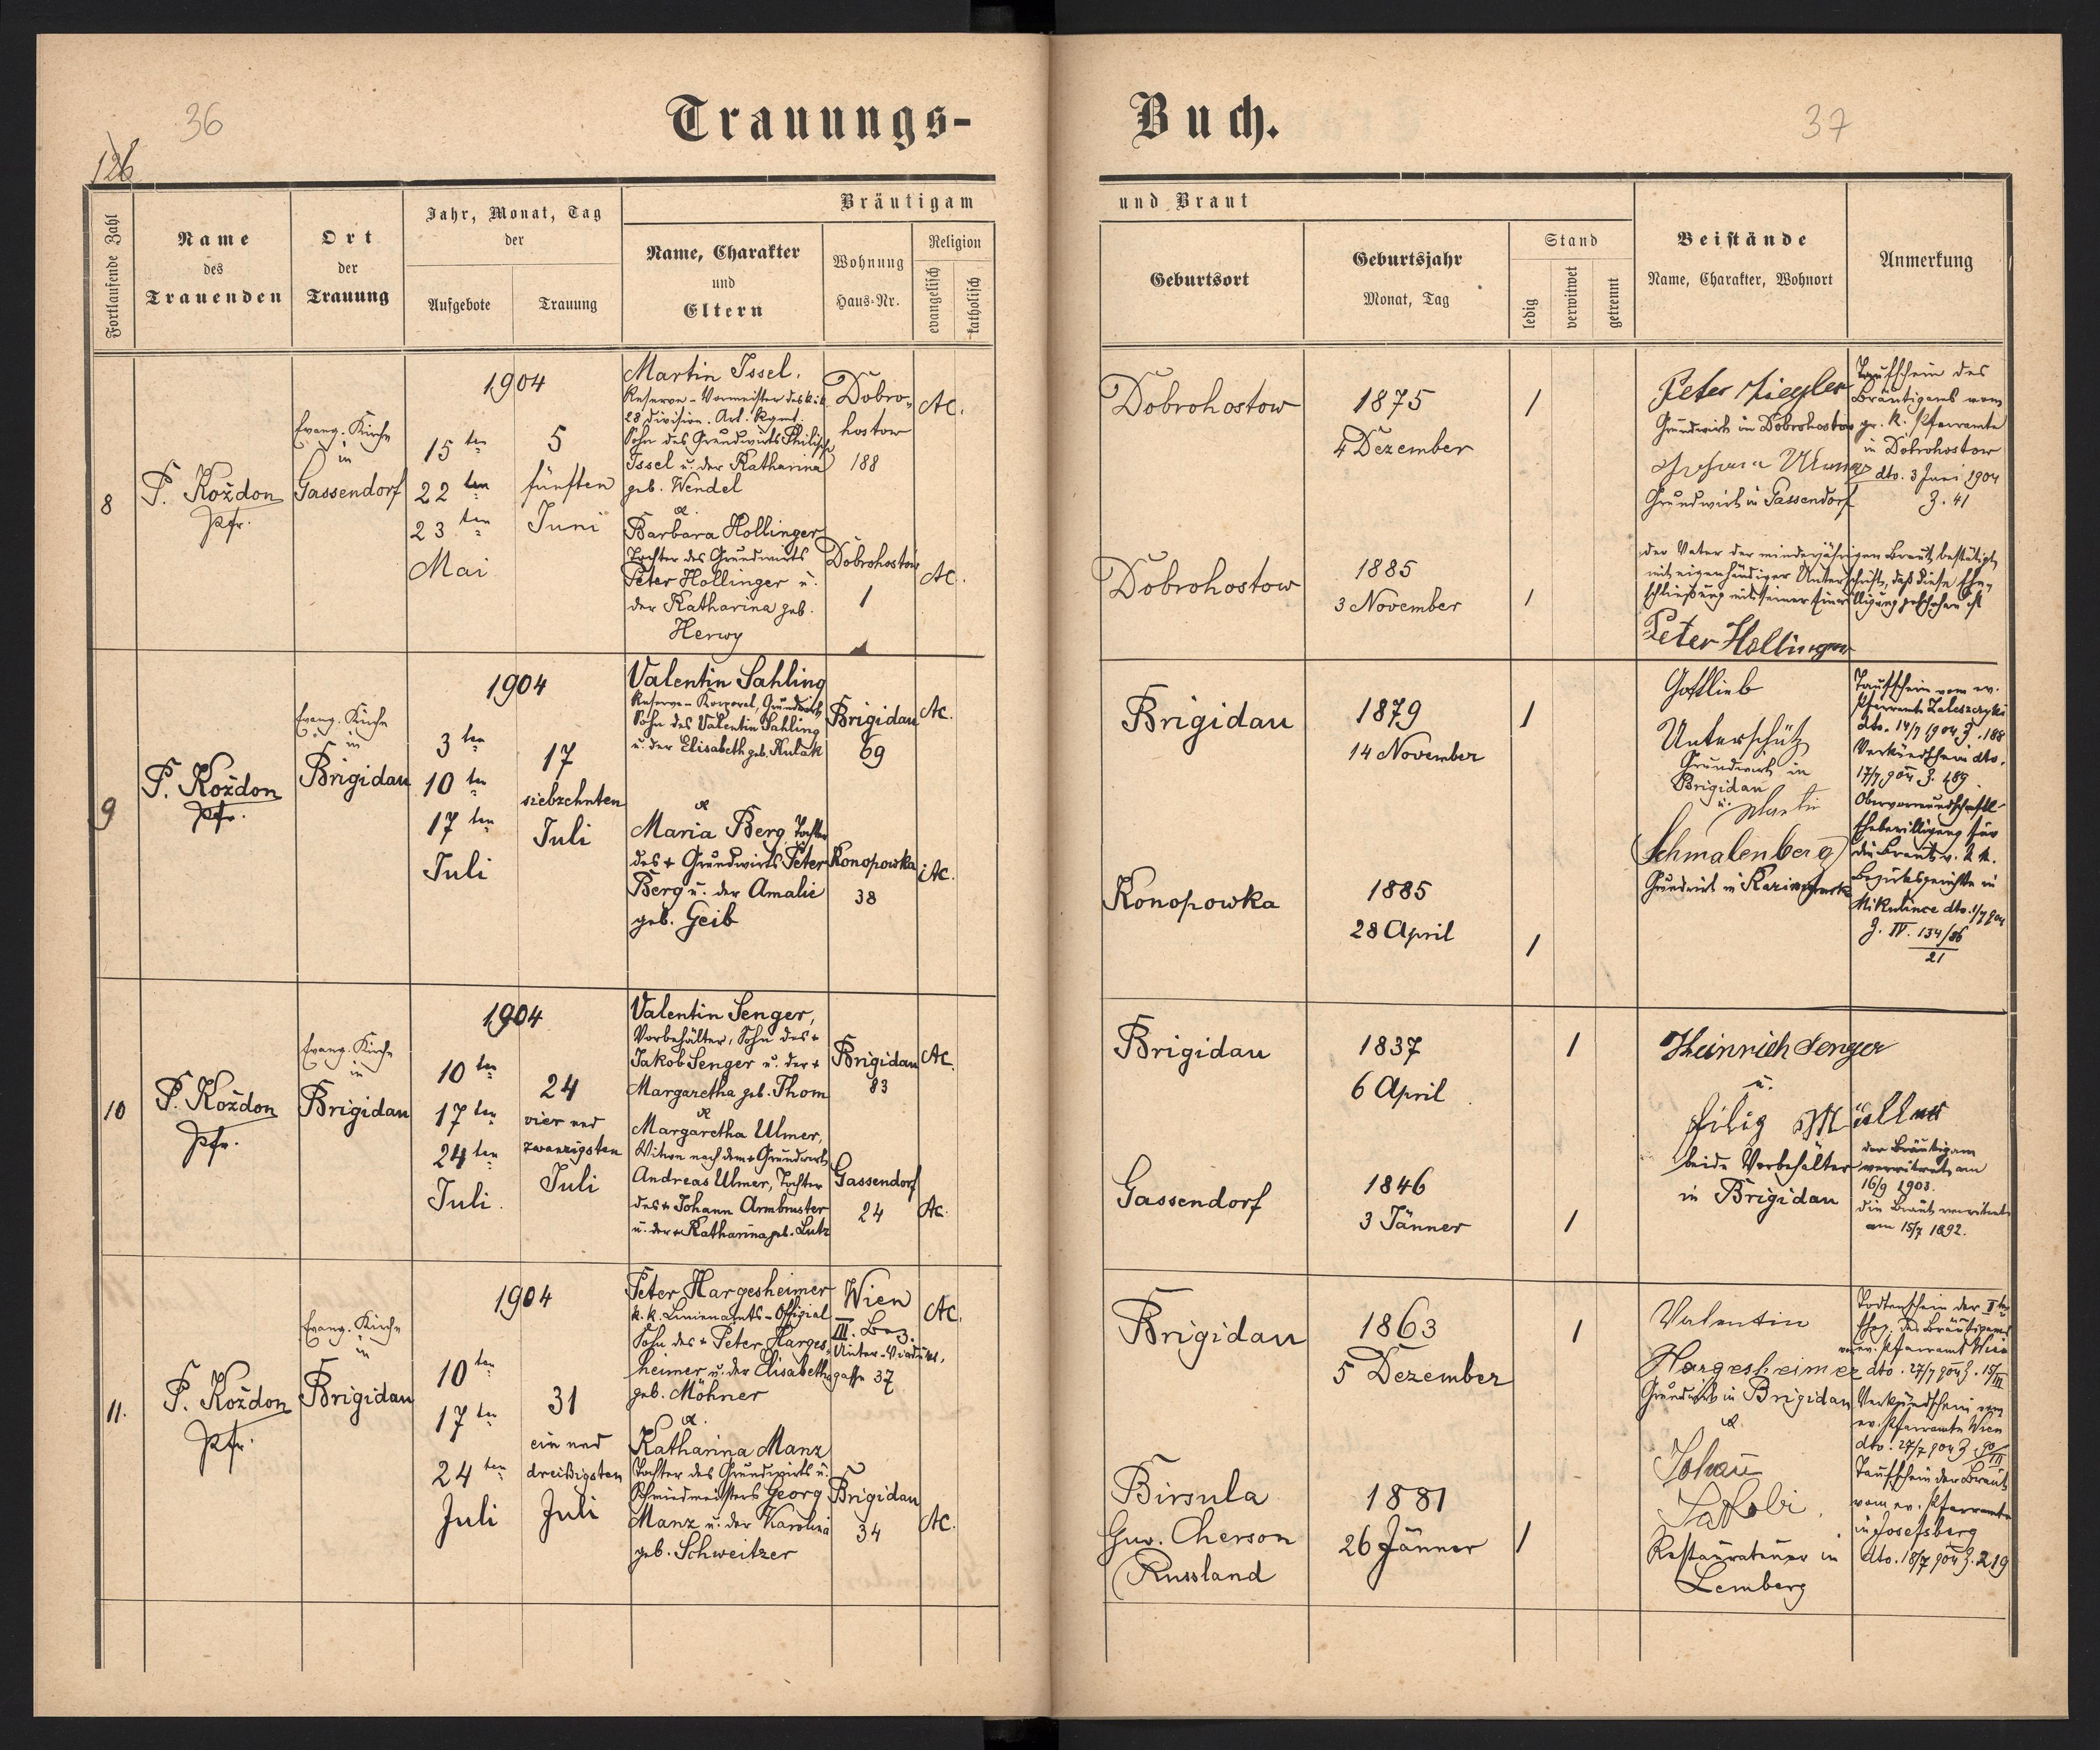 36
126
Trauungs-
Fortlaufende Zahl
Name
des
Trauenden
Ort
der
Trauung
Jahr, Monat, Tag
der
Aufgebote
Trauung
Bräutigam
Name, Charakter
und
Eltern
Wohnung
Haus-Nr.
Religion
evangelisch
katholisch
8
P. Kożdon
Pfr.
Evang. Kirche
in
Gassendorf
1904
15 ten
22 ten
23 ten
Mai
5
fünften
Juni
Martin Issel.
Reserve-Vormeister des k.k.
28 Division. Art. Rgmt.
Sohn des Grundwirts Philipp
Issel u. der Katharina
geb. Wendel
&
Barbara Hollinger
Tochter des Grundwirts
Peter Hollinger u.
der Katharina geb.
Herwy
Dobro-
hostow
188
AC.
Dobrohostow
1
AC.
9
P. Kożdon
Pfr.
Evang. Kirche
in
Brigidau
1904
3 ten
10 ten
17 ten
Juli
17
siebzehnten
Juli
Valentin Sahling
Reserve-Korporal, Grundwirth
Sohn des Valentin Sahling
u. der Elisabeth geb. Kulak
&
Maria Berg Tochter
des + Grundwirts Peter
Berg u. der Amalie
geb. Geib
Brigidau
69
AC.
Konopowka
38
AC.
10
P. Kożdon
Pfr.
Evang. Kirche
in
Brigidau
1904
10 ten
17 ten
24 ten
Juli.
24
vier und
zwanzigsten
Juli
Valentin Senger,
Vorbehälter, Sohn des +
Jakob Senger u. der +
Margaretha geb. Thom
&
Margaretha Ulmer,
Witwe nach dem + Grundwirth
Andreas Ulmer, Tochter
des + Johann Armbruster
u. der + Katharina geb. Lutz
Brigidau
83
AC.
Gassendorf
24
AC.
11.
P. Kożdon
Pfr.
Evang. Kirche
in
Brigidau
1904
10 ten
17 ten
24 ten
Juli
31
ein und
dreißigsten
Juli
Peter Hargesheimer
k. k. Linienamts-Offizial
Sohn des + Peter Harges-
heimer u. der Elisabetha
geb. Möhner
&
Katharina Manz
Tochter des Grundwirts u.
Schmiedmeisters Georg
Manz u. der Karolina
geb. Schweitzer
Wien
III. Bez.
Unter-Viaduct,
gasse 37
AC.
Brigidau
34
AC.
37
Buch.
und Braut
Geburtsort
Geburtsjahr
Monat, Tag
Stand
ledig
verwitwet
getrennt
Beistände
Name, Charakter, Wohnort
Anmerkung
Dobrohostow
1875
4 Dezember
1
Peter Ziegler
Grundwirth in Dobrohostow
Grundwirth in Gassendorf
Taufschein des
Bräutigams vom
gr. k. Pfarramte
in Dobrohostow
dto. 3 Juni 1904
Z. 41
Dobrohostow
1885
3 November
1
der Vater der minderjährigen Braut bestätigt,
mit eigenhändiger Unterschrift, daß diese Ehe-
schließung mit seiner Einwilligung geschehen ist
Peter Hollinger
Brigidau
1879
14 November
1
Gottlieb
Unterschütz
Grundwirth in
Brigidau
u. Martin
Schmalenberg
Grundwirth in
Taufschein vom ev.
Pfarramte Zaleszczyki
dto. 14/7 1904 Z. 188
Verkündschein dto.
17/7 904 Z. 189
Obervormundschaftl.
Ehebewilligung für
die Braut v. k. k.
Bezirksgerichte in
Mikulince dto. 1/7 904
Z. IV. 134/86
21
Konopowka
1885
28 April
1
Brigidau
1837
6 April
1
Heinrich Senger
u.
Filip Müller
beide Vorbehälter
in Brigidau
der Bräutigam
verwitwet am
16/9 1903.
die Braut verwitwet
am 15/7 1892.
Gassendorf
1846
3 Jänner
1
Brigidau
1863
5 Dezember
1
Valentin
Hargesheimer
Grundwirth in Brigidau
&
Johann
Jakobi
Restaurateur in
Lemberg
Todtenschein der I ten
Eheg. des Bräutigams
vom ev. Pfarramt Wien
dto. 27/7 904 Z. 15/III
Verkündschein vom
ev. Pfarramte Wien
dto. 27/7 904 Z. 90/III
Taufschein der Braut
vom ev. Pfarramte
in Josefsberg
dto. 18/7 904 Z. 219
Birsula
Guv. Cherson
Russland
1881
26 Jänner
1